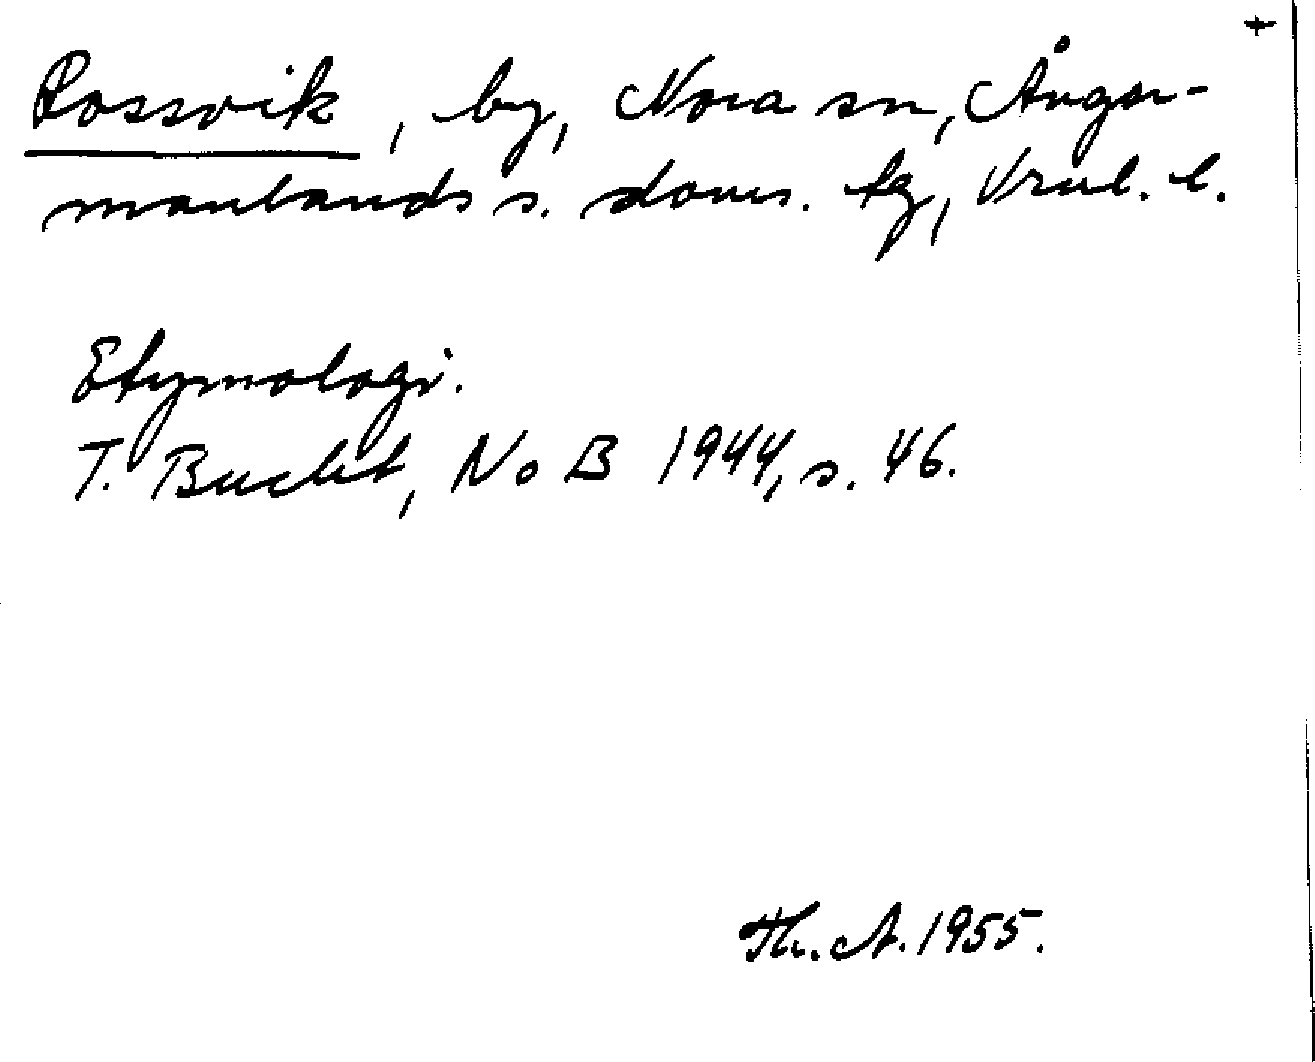 +
Rossvik, by, Nora sn, Ånger-
manlands s. doms. tg, Vrnl. l.
Etymologi.
T. Bucht, No B 1944, s. 46.
Th. A. 1955.